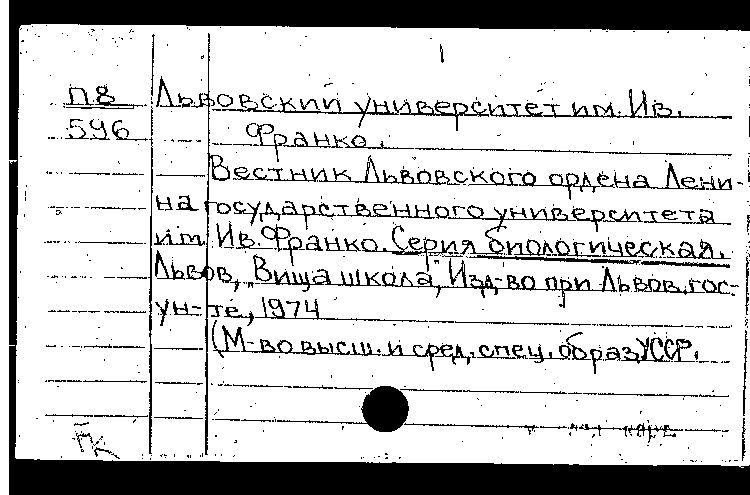 1
П8 Львовский университет им. Ив.
596 Франко.
Вестник Львовского ордена Лени-
на государственного университета
им. Ив. Франко. Серия биологическая.
Львов, "Вища школа", Изд-во при Львов. гос-
ун-те, 1974
(М-во высш. и сред. спец. образ. УССР.
ГК